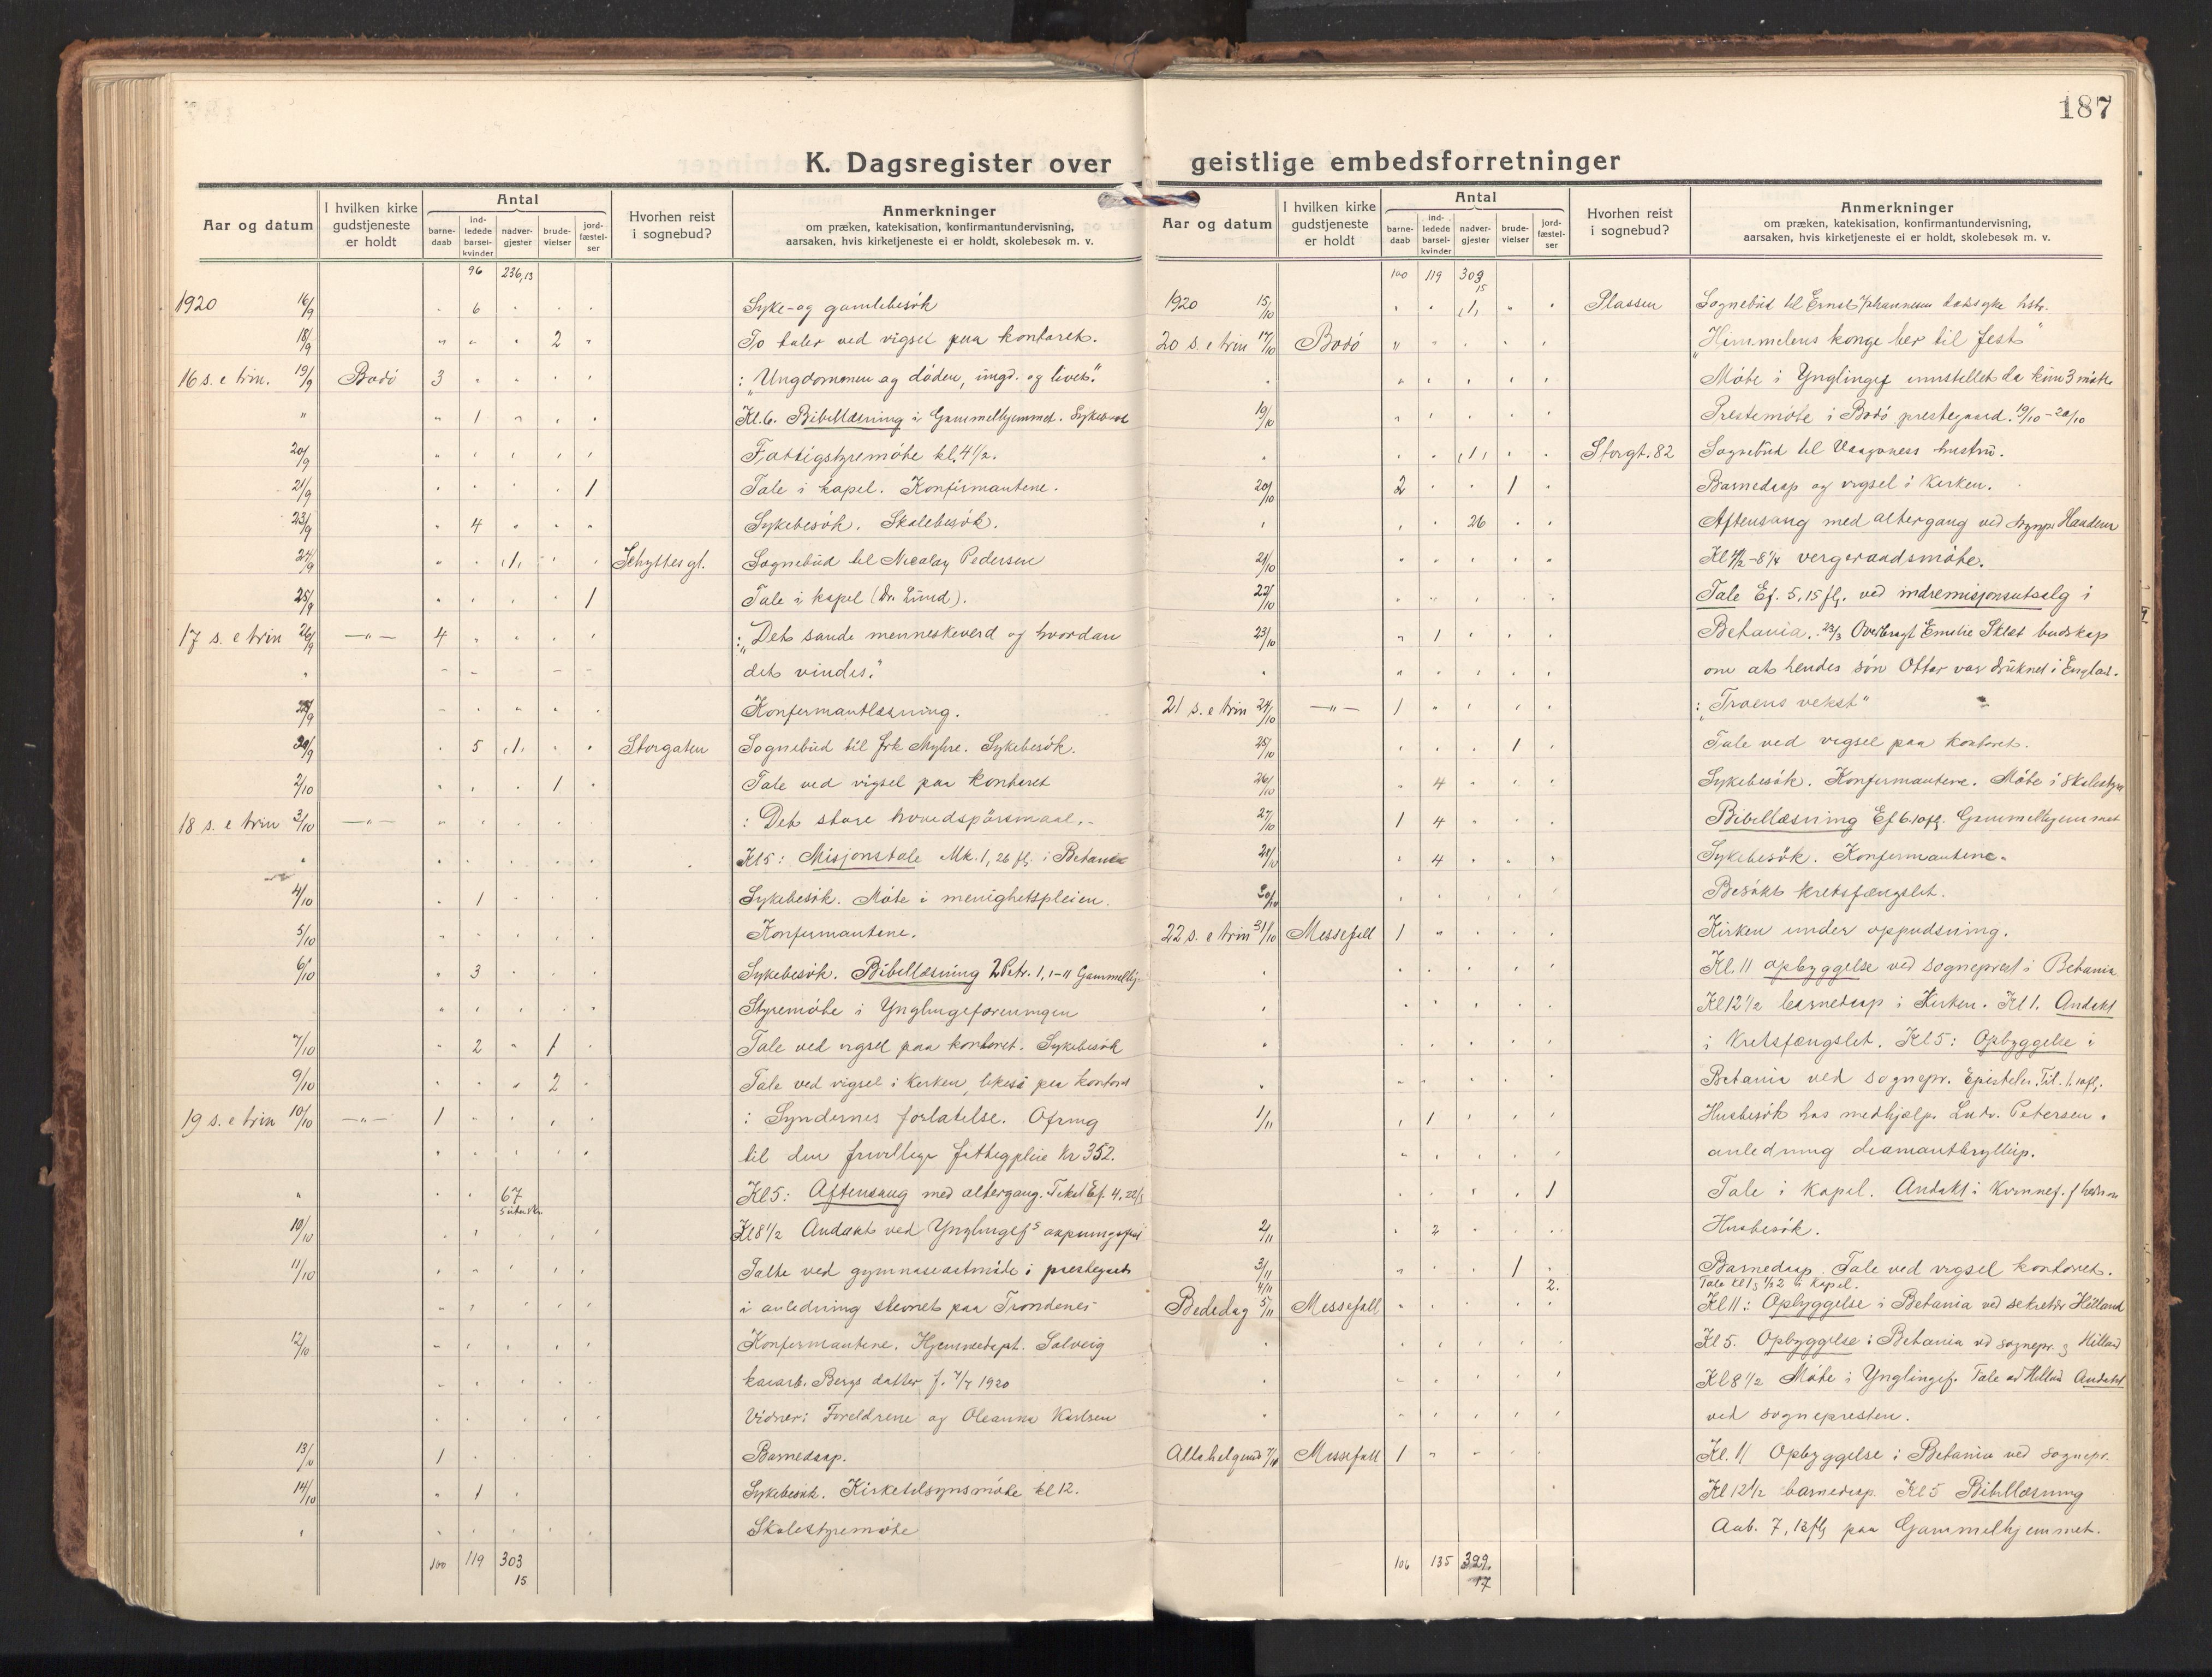 187
K. Dagsregister over geistlige embedsforretninger
Aar og datum
I hvilken kirke gudstjeneste er holdt
Antal
barne-daab
ind-ledede barsel-kvinder
nadver-gjester
brude-vielser
jord-fæstel-ser
Hvorhen reist i sognebud?
Anmerkninger
om præken, katekisation, konfirmantundervisning,
aarsaken, hvis kirketjeneste ei er holdt, skolebesøk m. v.
96 236,13
1920 16/9 6 Syke- og gamlebesök
18/9 2 To taler ved vigsel paa kontoret.
16 s. e trin. 19/9 Bodö 3 : "Ungdommen og döden, ungd. og livet."
" 1 Kl. 6. Bibellæsning i Gammelhjemmet.
20/9 Fattigstyremöte kl. 4 1/2.
21/9 1 Tale i kapel. Konfirmantene.
23/9 4 Sykebesök. Skolebesök.
24/9 1 Schyttesgt. Sognebud til Nicolay Pedersen
25/9 1 Tale i kapel (Dr. Lund).
17 s. e trin 26/9 —"— 4 : "Det sande menneskeverd og hvordan
det vindes."
Konfermantlæsning.
5 1 Storgaten Sognebud til frk Myhre. Sykebesök.
2/10 1 Tale ved vigsel paa kontoret
18 s. e trin 3/10 —"— : Det store hovedspörsmaal.
Kl 5: Misjonstale Mk. 1, 26 flg. i Betania
4/10 1 Sykebesök. Möte i menighetspleien.
5/10 Konfermantene.
6/10 3 Sykebesök. Bibellæsning 2 Petr. 1, 1-11 Gammelhj.
Styremöte i Ynglingeforeningen
7/10 2 1 Tale ved vigsel paa kontoret. Sykebesök
9/10 2 Tale ved vigsel i kirken, likesaa paa kontoret
19 s. e trin 10/10 —"— 1 : Syndernes forlatelse. Ofring
til den frivillige fattigpleie Kr 352.
" 67 Kl 5: Aftensang med altergang. Tekst Ef. 4, 22
10/10 Kl 8 1/2 Andakt ved Ynglingef's
11/10 Talte ved gymnasiastmöte i prestegaard
i anledning stevnet paa Trondenes
12/10 Konfermantene. Hjemmedöpt. Solveig
Bergs datter f. 7/7 1920
Vidner: Foreldrene og Oleanna Karlsen
13/10 1 Barnedaap.
14/10 1 Sykebesök. Kirketilsynsmöte kl 12.
Skolestyremöte
100 119 303
15
Aar og datum
I hvilken kirke gudstjeneste er holdt
Antal
barne-daab
ind-ledede barsel-kvinder
nadver-gjester
brude-vielser
jord-fæstel-ser
Hvorhen reist i sognebud?
Anmerkninger
om præken, katekisation, konfirmantundervisning,
aarsaken, hvis kirketjeneste ei er holdt, skolebesøk m. v.
100 119 303
15
1920 15/10 1 Plassen Sognebud til Ernst Johannesen
20 s. e trin 17/10 Bodö "Himmelens konge ber til fest"
Möte i Ynglingef innstillet da kun 3 mötte
19/10 Prestemöte i Bodö prestegaard. 19/10 - 20/10
1 Storgt. 82 Sognebud til Vaagoness hustru.
20/10 2 1 Barnedaap og vigsel i kirken.
26 Aftensang med altergang ved
21/10 vergeraadsmöte.
Tale Ef. 5, 15 flg. ved indremisjonsutsalg i
23/10 1 Betania. Overbragt Emilie budskap
om at hendes sön Ottar var druknet i England.
21 s. e trin 24/10 —"— 1 : "Troens vekst"
25/10 1 Tale ved vigsel paa kontoret.
26/10 4 Sykebesök. Konfermantene. Möte i skolestyre
27/10 1 4 Bibellæsning Ef 6. 10 flg. Gammelhjemmet
28/10 4 Sykebesök. Konfermantene.
Besökt kretsfængslet.
22 s. e trin 31/10 Messefall 1 Kirken under oppudsning.
Kl. 11 opbyggelse ved sogneprest i Betania
Kl 12 1/2 barnedaap i kirken. Kl 1. Andakt
i kretsfængslet. Kl 5: Opbyggelse i
Betania ved sognepr. Epistelen. Tit. 1, 10 flg.
1/11 1 Husbesök hos medhjælp. Ludv. Petersen
anledning diamantbryllup.
1 Tale i kapel. Andakt i
2/11 2 Husbesök.
3/11 1 Barnedaap. Tale ved vigsel kontoret.
4/11 2.
Bededag 5/11 Messefall Kl 11: Opbyggelse i Betania ved sekretær Hilland
Kl 5. Opbyggelse i Betania ved sognepr. og Hilland
Kl 8 1/2 Möte i Ynglingef. Tale ved Hilland Andakt
ved sognepresten.
Allehelgensd 7/11 Messefall 1 Kl. 11 Opbyggelse i Betania ved sognepr.
Kl 12 1/2 barnedaap. Kl 5 Bibellæsning
Aab. 7, 13 flg paa Gammelhjemmet.
106 135 329
17